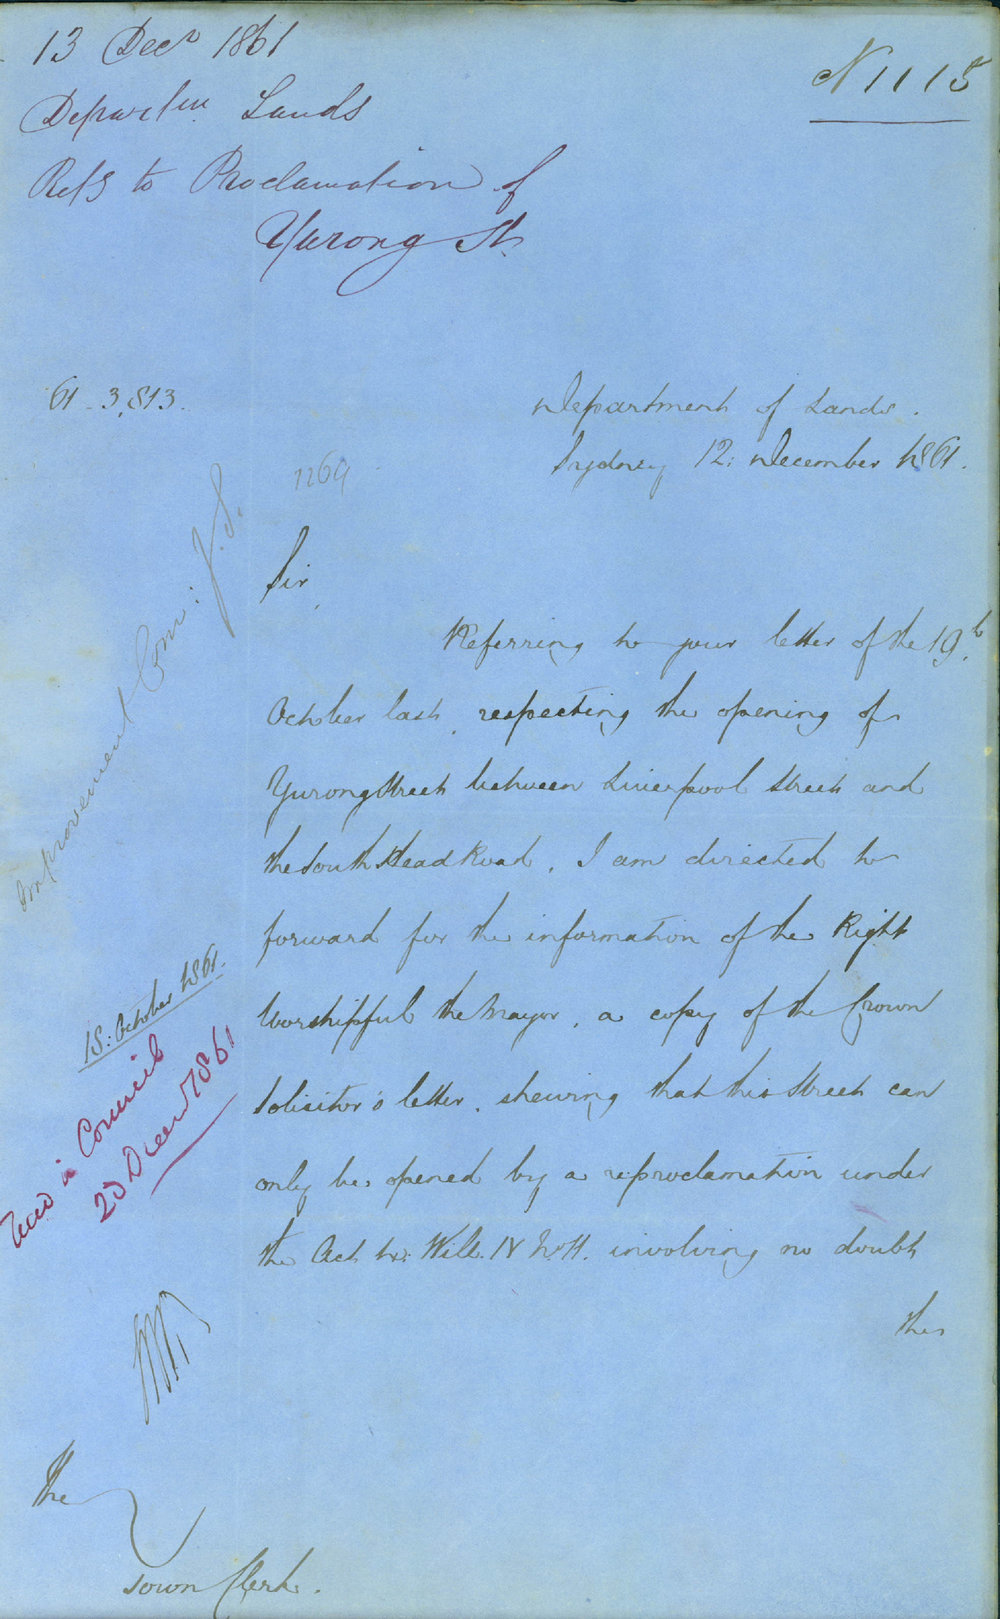 13 Decr 1861
Departm Lands
Refs to Proclamation of
Yurong St.
No 1115
61-3,813.
Department of Lands.
Sydney 12: December 1861.
1264
Improvement Com: J.S.
Sir,
Referring to your letter of the 19th
October last, respecting the opening of
Yurong Street between Liverpool Street and
the South Head Road, I am directed to
forward for the information of the Right
Worshipful the Mayor, a copy of the Crown
Solicitor's letter, shewing that this Street can
only be opened by a reproclamation under
the Act 4: Will. IV No 11. involving no doubt
the
18: October 1861.
in Council
23 Decem 1861
The
Town Clerk.